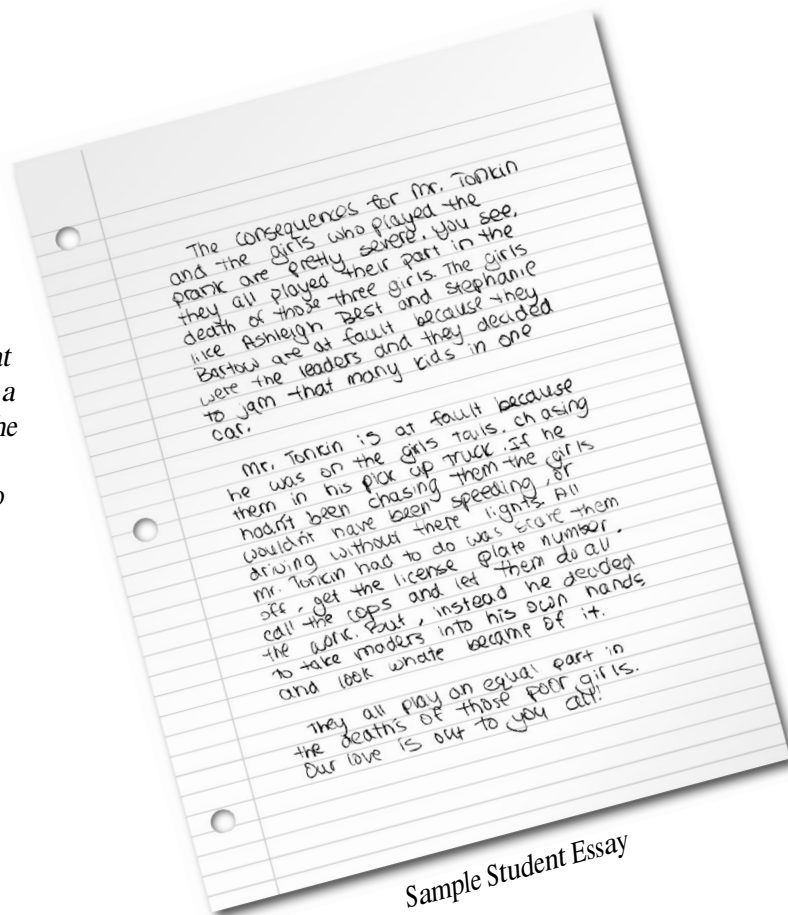 The consequences for Mr. Tonkin
and the girls who played the
prank are pretty severe. You see,
they all played their part in the
death of those three girls. The girls
like Ashleigh Best and Stephanie
Bartow are at fault because they
were the leaders and they decided
to jam that many kids in one
car.
Mr. Tonkin is at fault because
he was on the girls tails, chasing
them in his pick up truck. If he
hadn't been chasing them the girls
wouldn't have been speeding, or
driving without there lights. All
Mr. Tonkin had to do was scare them
off, get the license plate number,
call the cops and let them do all
the work. But, instead he decided
to take maders into his own hands
and look whate became of it.
They all play an equal part in
the death's of those poor girls.
Our love is out to you all!
Sample Student Essay
a